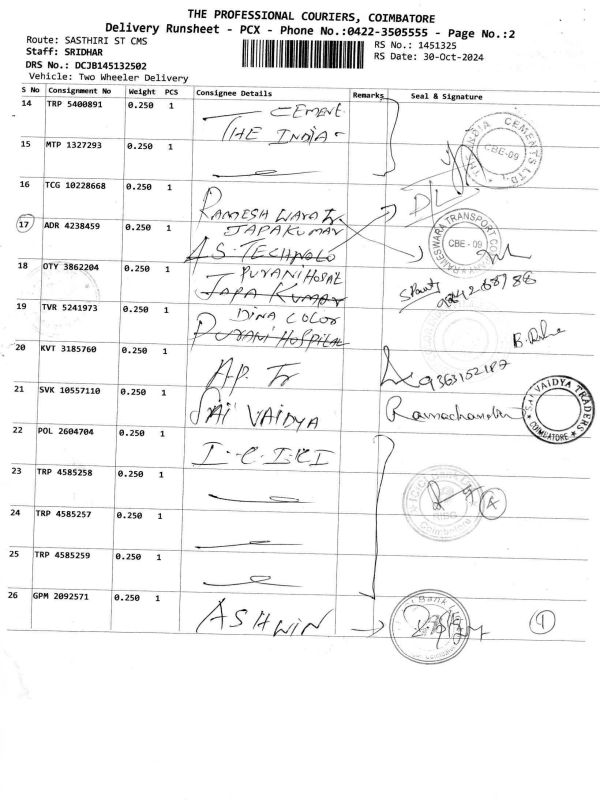 THE PROFESSIONAL COURIERS, COIMBATORE
Delivery Runsheet - PCX - Phone No.:0422-3505555 - Page No.:2
Route: SASTHIRI ST CMS
RS No.: 1451325
Staff: SRIDHAR
RS Date: 30-Oct-2024
DRS No.: DCJB145132502
Vehicle: Two Wheeler Delivery
S No Consignment No Weight PCS Consignee Details Remarks Seal & Signature
14 TRP 5400891 0.250 1
CEMENT
THE INDIA
15 MTP 1327293 0.250 1
THE INDIA CEMENTS LTD.
CBE-09
16 TCG 10228668 0.250 1
RAMESHWARA Tr
17 ADR 4238459 0.250 1
JAPAKUMAR
A.S. TECHNOLO
RAMESWARA TRANSPORT COMPANY
CBE - 09
18 OTY 3862204 0.250 1
PURANI HOSPAL
JAPA KUMAR
9842268988
19 TVR 5241973 0.250 1
DINA COLOR
PURANI HOSPITAL
20 KVT 3185760 0.250 1
A.P. Tr
9363152187
21 SVK 10557110 0.250 1
SAI VAIDYA
Ramachandran
SAI VAIDYA TRADERS
COIMBATORE
22 POL 2604704 0.250 1
I.C.I.CI
23 TRP 4585258 0.250 1
4
24 TRP 4585257 0.250 1
25 TRP 4585259 0.250 1
26 GPM 2092571 0.250 1
ASHWIN
Bank
1